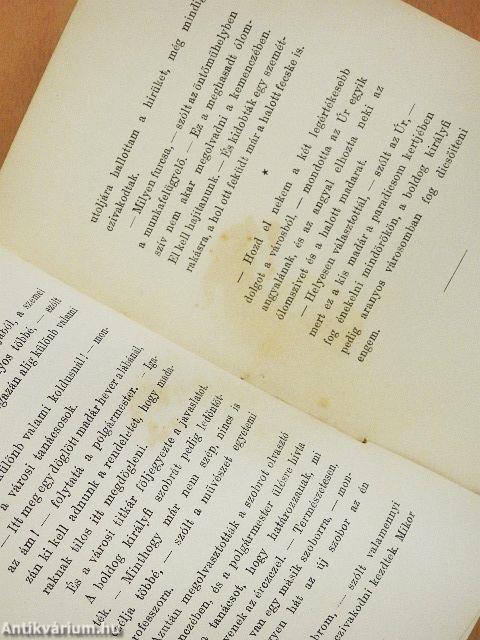 jából, a szemei
yos többé, — szólt
gazán alig különb valami
különb valami koldusnál! — mon-
a városi tanácsosok.
— Itt meg egy döglött madár hever a lábánál,
az ám! — folytatá a polgármester. — Iga-
zán ki kell adnunk a rendeletet, hogy mada-
raknak tilos itt megdögleni.
És a városi titkár följegyezte a javaslatot.
A boldog királyfi szobrát pedig ledöntöt-
ték. — Minthogy már nem szép, nincs is
célja többé, — szólt a művészet egyetemi
professzora.
azután megolvasztották a szobrot olvasztó
menczében, és a polgármester ülésre hívta
a tanácsot, hogy határozzanak, mi
gyenek az érczczel. — Természetesen,
van egy másik szoborra, — mon-
yen hát az új szobor az én
rom, — szólt valamennyi
zivakodni kezdtek. Mikor
utoljára hallottam a hírüket, még mindig
czivakodtak.
— Milyen furcsa, — szólt az öntőműhelyben
a munkafelügyelő. — Ez a meghasadt ólom-
szív nem akar megolvadni a kemenczében.
El kell hajítanunk. — És kidobták egy szemét-
rakásra, a hol ott feküdt már a halott fecske is.
*
— Hozd el nekem a két legértékesebb
dolgot a városból, — mondotta az Úr egyik
angyalának, és az angyal elhozta neki az
ólomszívet és a halott madarat.
— Helyesen választottál, — szólt az Úr, —
mert ez a kis madár a paradicsom kertjében
fog énekelni mindörökön, a boldog királyfi
pedig aranyos városomban fog dicsőíteni
engem.
Antikvárium.hu